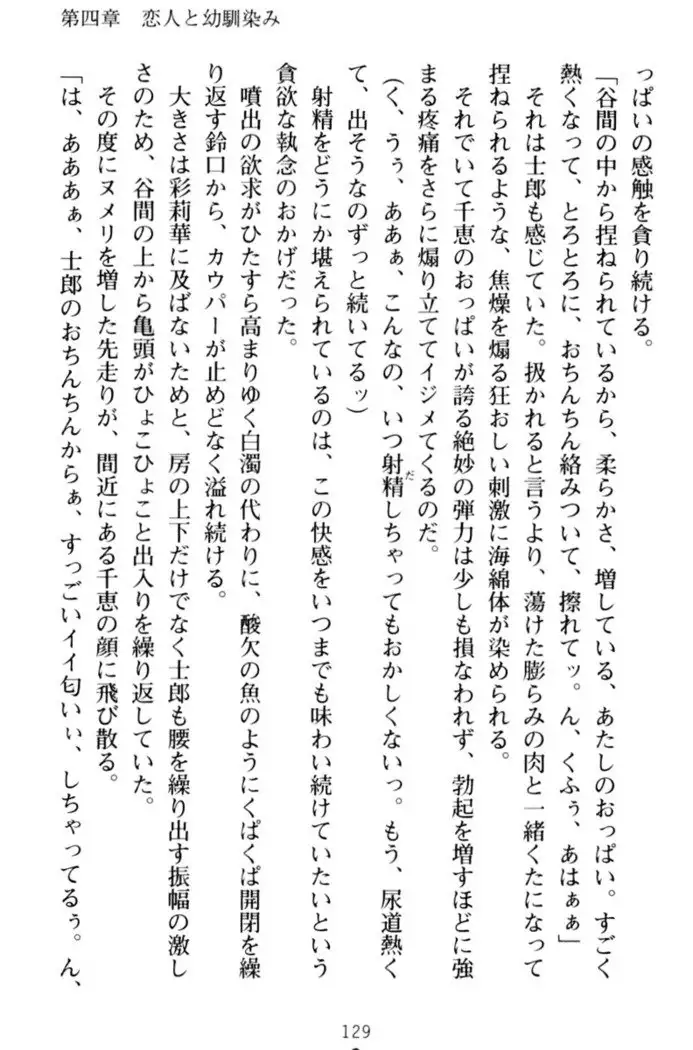 第四章　恋人と幼馴染み
っぱいの感触を貪り続ける。
「谷間の中から捏ねられているから、柔らかさ、増している、あたしのおっぱい。すごく
熱くなって、とろとろに、おちんちん絡みついて、擦れてッ。ん、くふぅ、あはぁぁ」
それは士郎も感じていた。扱かれると言うより、蕩けた膨らみの肉と一緒くたになって
捏ねられるような、焦燥を煽る狂おしい刺激に海綿体が染められる。
それでいて千恵のおっぱいが誇る絶妙の弾力は少しも損なわれず、勃起を増すほどに強
まる疼痛をさらに煽り立ててイジメてくるのだ。
(く、うぅ、ああぁ、こんなの、いつ射精しちゃってもおかしくないっ。もう、尿道熱く
て、出そうなのずっと続いてるッ)
射精をどうにか堪えられているのは、この快感をいつまでも味わい続けていたいという
貪欲な執念のおかげだった。
噴出の欲求がひたすら高まりゆく白濁の代わりに、酸欠の魚のようにくぱくぱ開閉を繰
り返す鈴口から、カウパーが止めどなく溢れ続ける。
大きさは彩莉華に及ばないためと、房の上下だけでなく士郎も腰を繰り出す振幅の激し
さのため、谷間の上から亀頭がひょこひょこと出入りを繰り返していた。
その度にヌメリを増した先走りが、間近にある千恵の顔に飛び散る。
「は、あああぁ、士郎のおちんちんからぁ、すっごいイイ匂いぃ、しちゃってるぅ。ん、
129